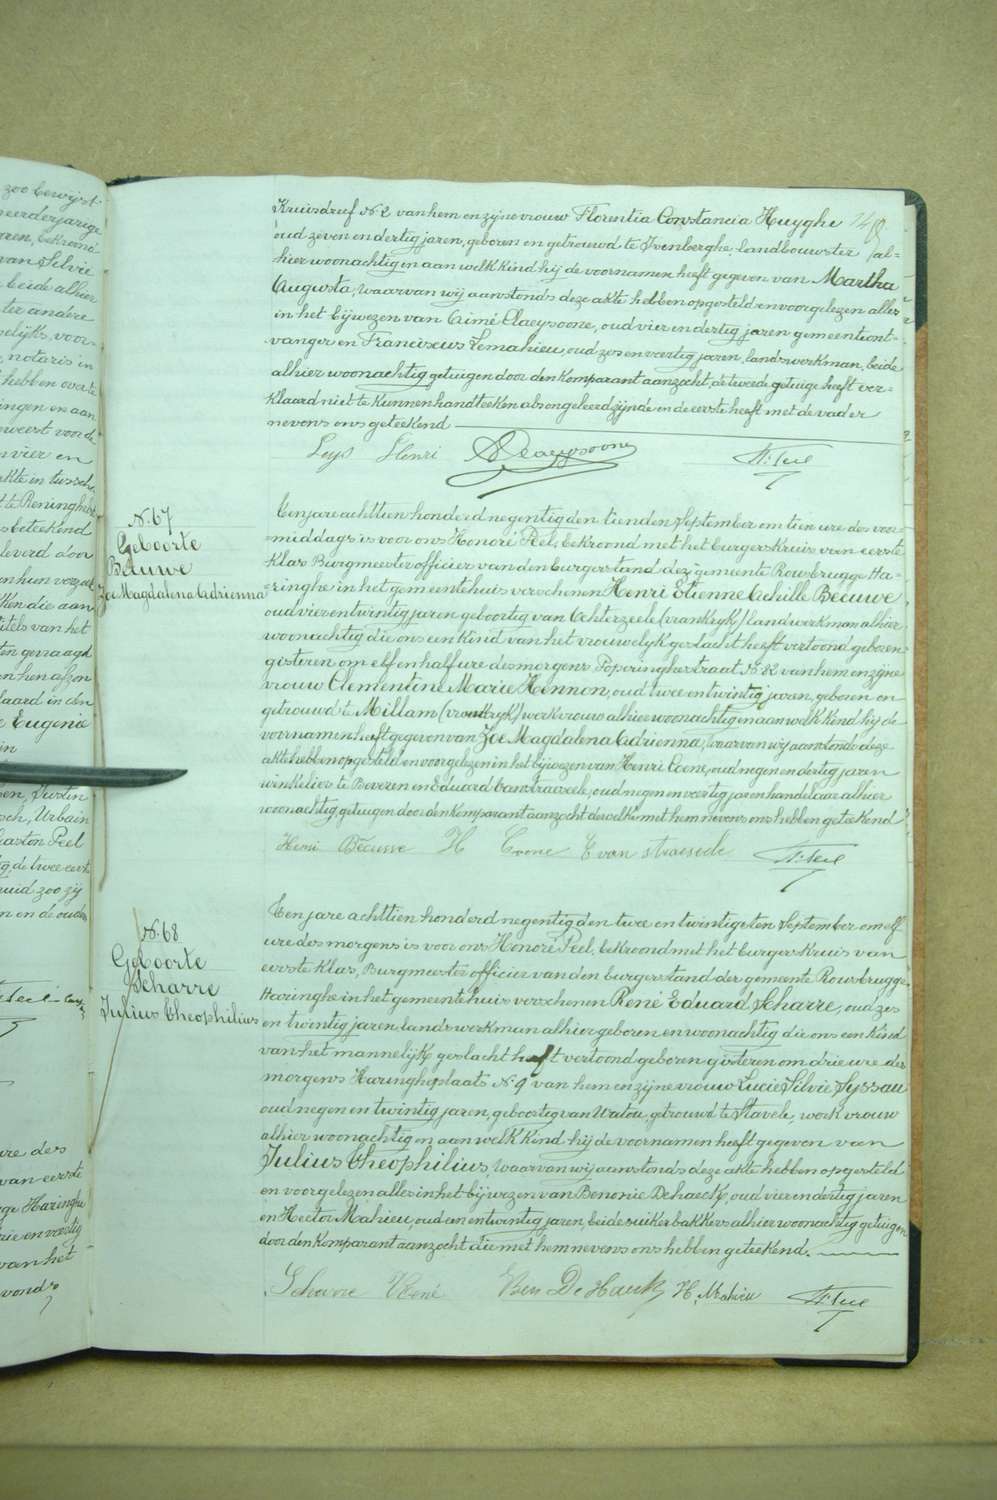 zoo bewijst
meerderjarige
van Silvie
beide alhier
ter andere
notaris in
hebben over te
ingen en aan
vier en
akte en tusschen
beteekend
van het
ten gevraagd
Eugenie
Justin
Urbain
Gaston Peel
de twee eerste
luid zoo zij
ure des
van eerste
Haringhe
van het
Kruisdreef N. 2 van hem en zijne vrouw Florentia Constancia Huyghe
oud zeven en dertig jaren, geboren en getrouwd te Isenberghe, landbouwster al-
hier woonachtig en aan welk kind hij de voornamen heeft gegeven van Martha
Augusta, waarvan wij aanstonds deze akte hebben opgesteld en voorgelezen alles
in het bijwezen van Aimé Claeysoone, oud vier en dertig jaren gemeenteont-
vanger en Franciscus Lemahieu, oud zes en veertig jaren, landswerkman, beide
alhier woonachtig getuigen door den komparant aanzocht, de tweede getuige heeft ver-
klaard niet te kunnen handteeken als ongeleerd zijnde en de eerste heeft met de vader
nevens ons geteekend
Leys Henri A Claeysoone H. Peel
N. 67
Geboorte
Beeuwe
Zoe Magdalena Adrienna
Ten jare achttien honderd negentig den tienden September om tien ure des voor-
middags is voor ons Honoré Peel, bekroond met het burgerskruis van eerste
klas Burgmeester officier van den burgerstand der gemeente Rousbrugge Ha-
ringhe in het gemeentehuis verschenen Henri Etienne Achille Beeuwe
oud vier en twintig jaren geboortig van Ochtezeele (vrankryk) landwerkman alhier
woonachtig die ons een kind van het vrouwelyk geslacht heeft vertoond geboren
gisteren om elf en half ure des morgens Poperinghestraat N. 82 van hem en zijne
vrouw Clementine Marie Hennon, oud twee en twintig jaren, geboren en
getrouwd te Millam (vrankryk) werkvrouw alhier woonachtig en aan welk kind hij de
voornamen heeft gegeven van Zoe Magdalena Adrienna, waarvan wij aanstonds deze
akte hebben opgesteld en voorgelezen in het bijwezen van Henri Coene, oud negen en dertig jaren
winkelier te Beveren en Eduard Vanstraseele, oud negen en veertig jaren handelaar alhier
woonachtig getuigen door den komparant aanzocht dewelke met hem nevens ons hebben geteekend
Henri Beeuwe H Coene E van straseele H. Peel
N. 68
Geboorte
Scharre
Julius Theophilius
Ten jare achttien honderd negentig den twee en twintigsten September om elf
ure des morgens is voor ons Honoré Peel, bekroond met het burgerskruis van
eerste klas, Burgmeester officier van den burgerstand der gemeente Rousbrugge
Haringhe in het gemeentehuis verschenen René Eduard Scharre, oud zes
en twintig jaren, landswerkman alhier geboren en woonachtig die ons een kind
van het mannelijk geslacht heeft vertoond geboren gisteren om drie ure des
morgens Haringheplaats N. 9 van hem en zijne vrouw Lucie Silvie Syssau
oud negen en twintig jaren, geboortig van Watou, getrouwd te Stavele, werkvrouw
alhier woonachtig en aan welk kind hij de voornamen heeft gegeven van
Julius Theophilius, waarvan wij aanstonds deze akte hebben opgesteld
en voorgelezen alles in het bijwezen van Benonie Dehaeck, oud vier en dertig jaren
en Hector Mahieu, oud een en twintig jaren, beide suikerbakkers alhier woonachtig getuigen
door den komparant aanzocht die met hem nevens ons hebben geteekend.
Scharre René Ben De Haeck H. Mahieu H. Peel